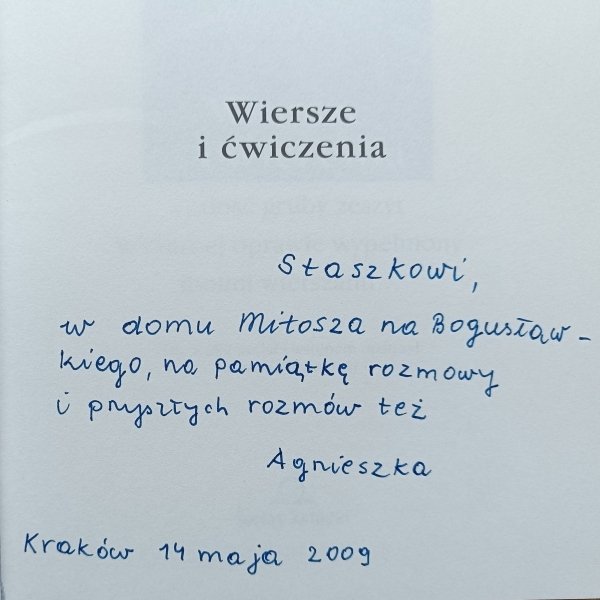 Wiersze
i ćwiczenia
Staszkowi,
w domu Miłosza na Bogusław-
kiego, na pamiątkę rozmowy
i przyszłych rozmów też
Agnieszka
Kraków 14 maja 2009